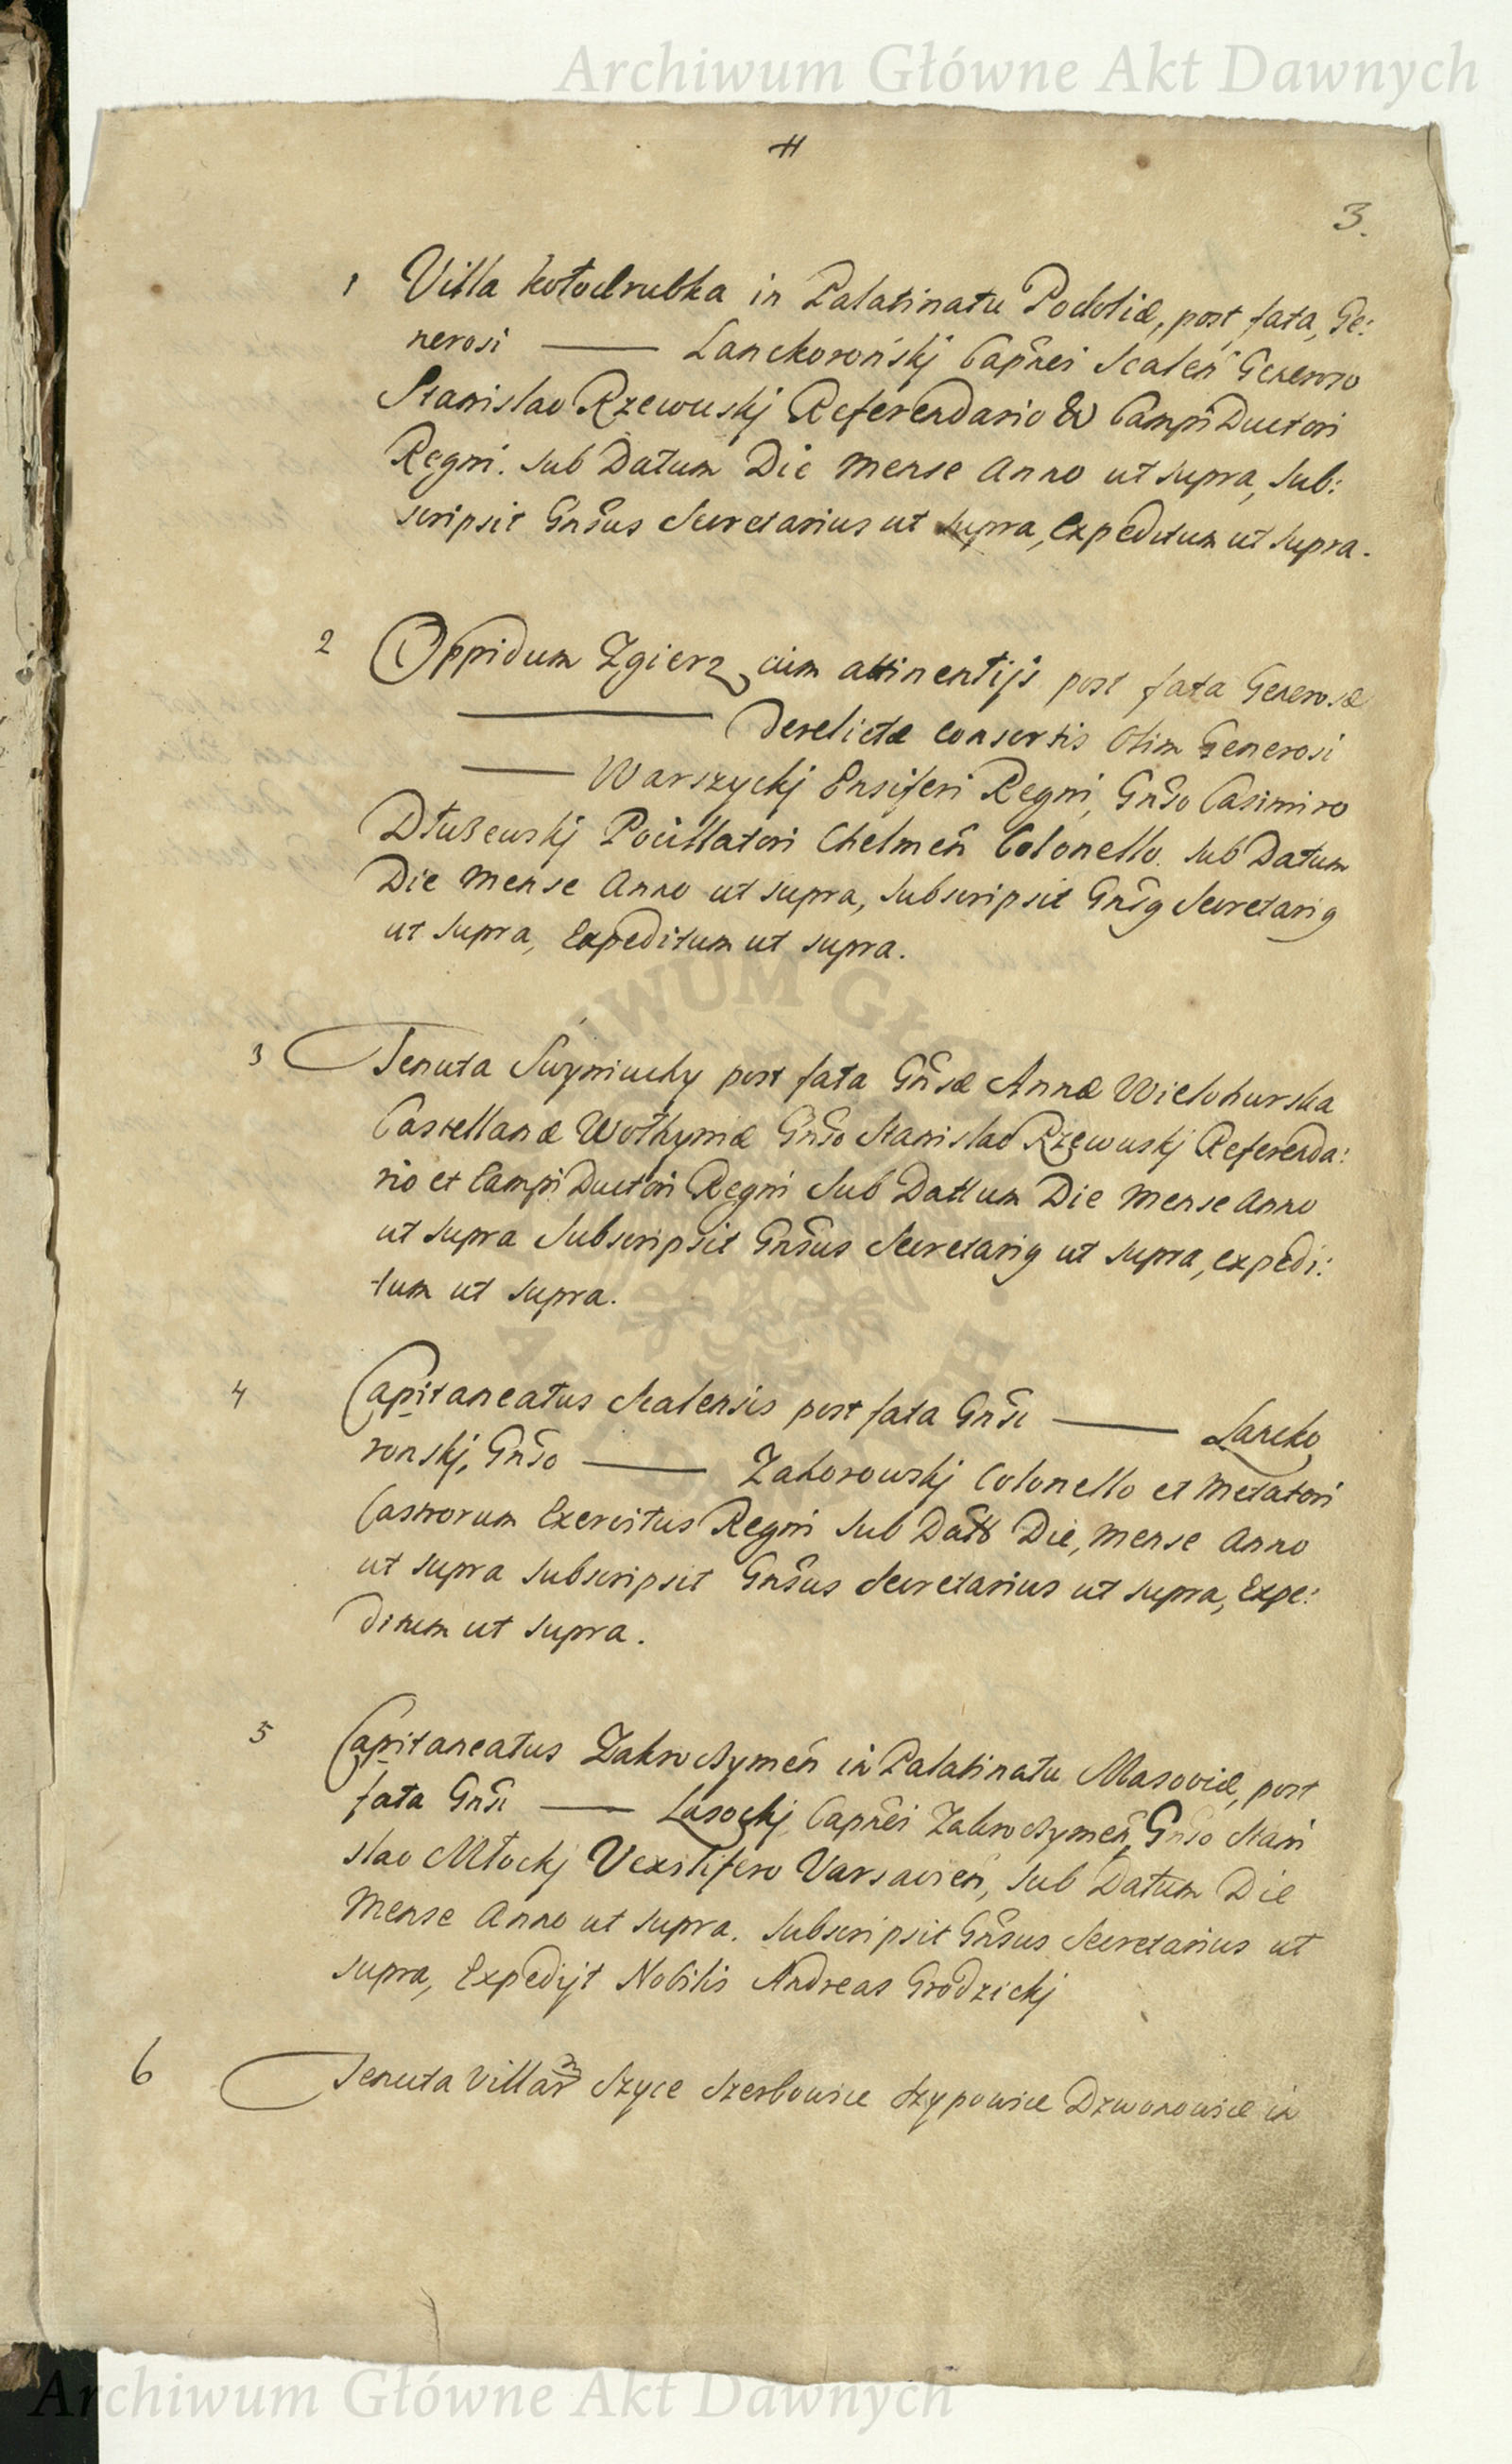 Archiwum Główne Akt Dawnych
3.
1 Villa Kołodrubka in Palatinatu Podoliæ, post fata, Ge:
nerosi —— Lanckoroński Capñei Scaleñ Generoso
Stanislao Rzewuskj Referendario & Campi Ductori
Regni. Sub Datum Die Mense Anno ut supra, Sub:
scripsit Gnsus Secretarius ut supra, Expeditum ut supra.
2 Oppidum Zgierz cum attinentijs post fata Generosæ
—— Derelictæ Consortis Olim Generosi
—— Warszyckj Ensiferi Regni, Gnso Casimiro
Dłuzewskj Pocillatori Chelmeñ Colonello. Sub Datum
Die Mense Anno ut supra, Subscripsit Gnsg Secretarig
ut supra, Expeditum ut supra.
3 Tenuta post fata Gnsæ Annæ Wielohurska
Castellanæ Wołhyniæ Gnso Stanislao Rzewuskj Referenda:
rio et Campi Ductori Regni Sub Dattum Die Mense Anno
ut supra Subscripsit Gnsus Secretarig ut supra, expedi:
tum ut supra.
4 Capitaneatus Scalensis post fata Gnsi —— Lancko
ronskj, Gnso —— Zahorowskj Colonello et Metatori
Castrorum Exercitus Regni Sub Datt Die, Mense Anno
ut supra Subscripsit Gnsus Secretarius ut supra, Expe:
ditum ut supra.
5 Capitaneatus Zakroczymeñ in Palatinatu Masoviæ, post
fata Gnsi —— Lasockj Capñei Zakroczymeñ, Gnso Stani
slao Młockj Vexillifero Varsavieñ, Sub Datum Die
Mense Anno ut supra. Subscripsit Gnsus Secretarius ut
supra, Expedijt Nobilis Andreas Grodzickj
6 Tenuta Villar Szyce Szerbowice Szypowice Dzwonowice in
Archiwum Główne Akt Dawnych